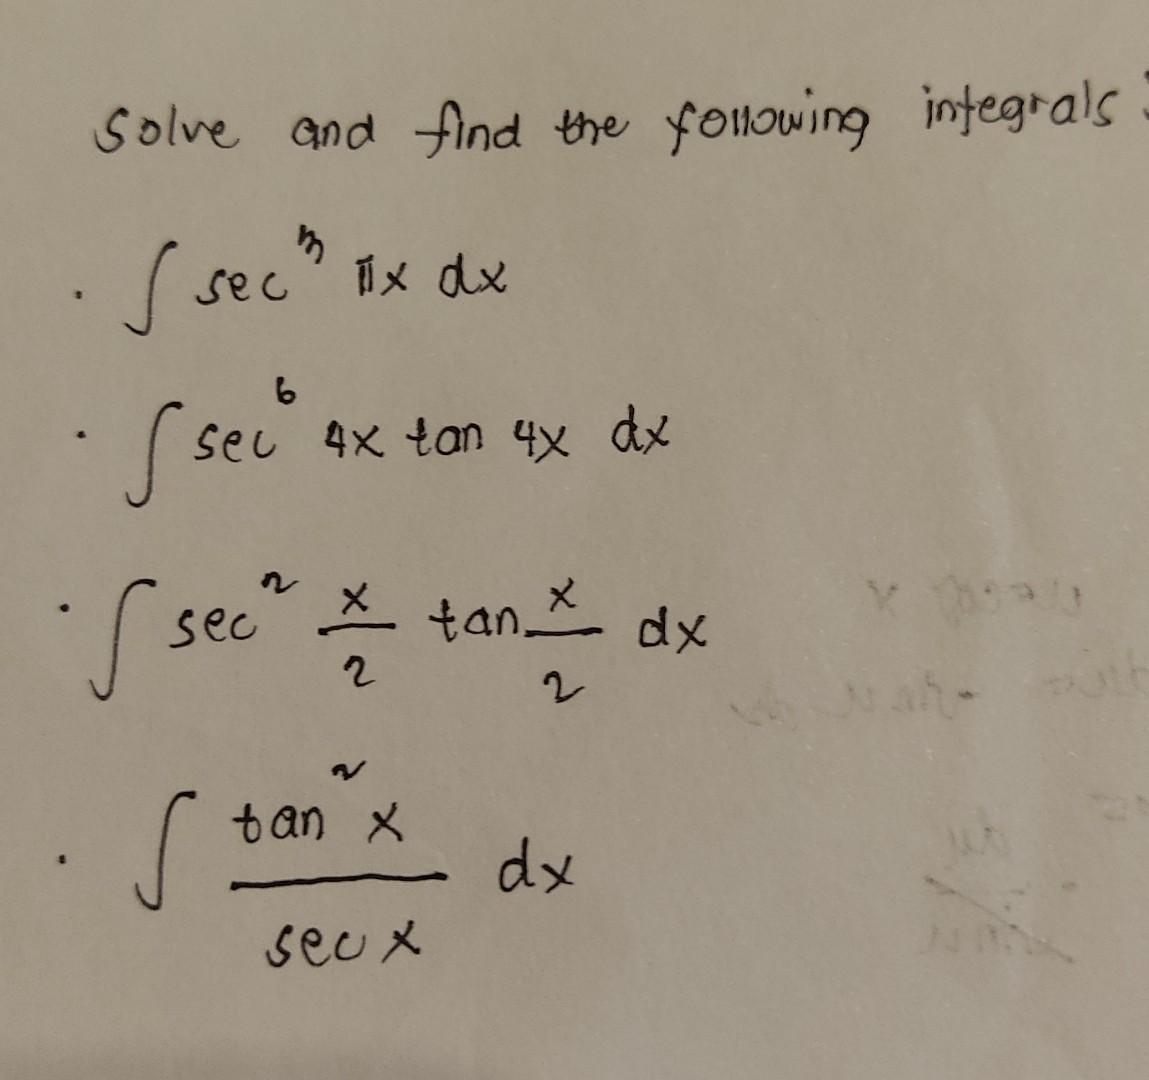 Solve and find the following integrals:
· ∫ sec³ πx dx
· ∫ sec⁶ 4x tan 4x dx
· ∫ sec² x/2 tan x/2 dx
· ∫ tan² x / sec x dx